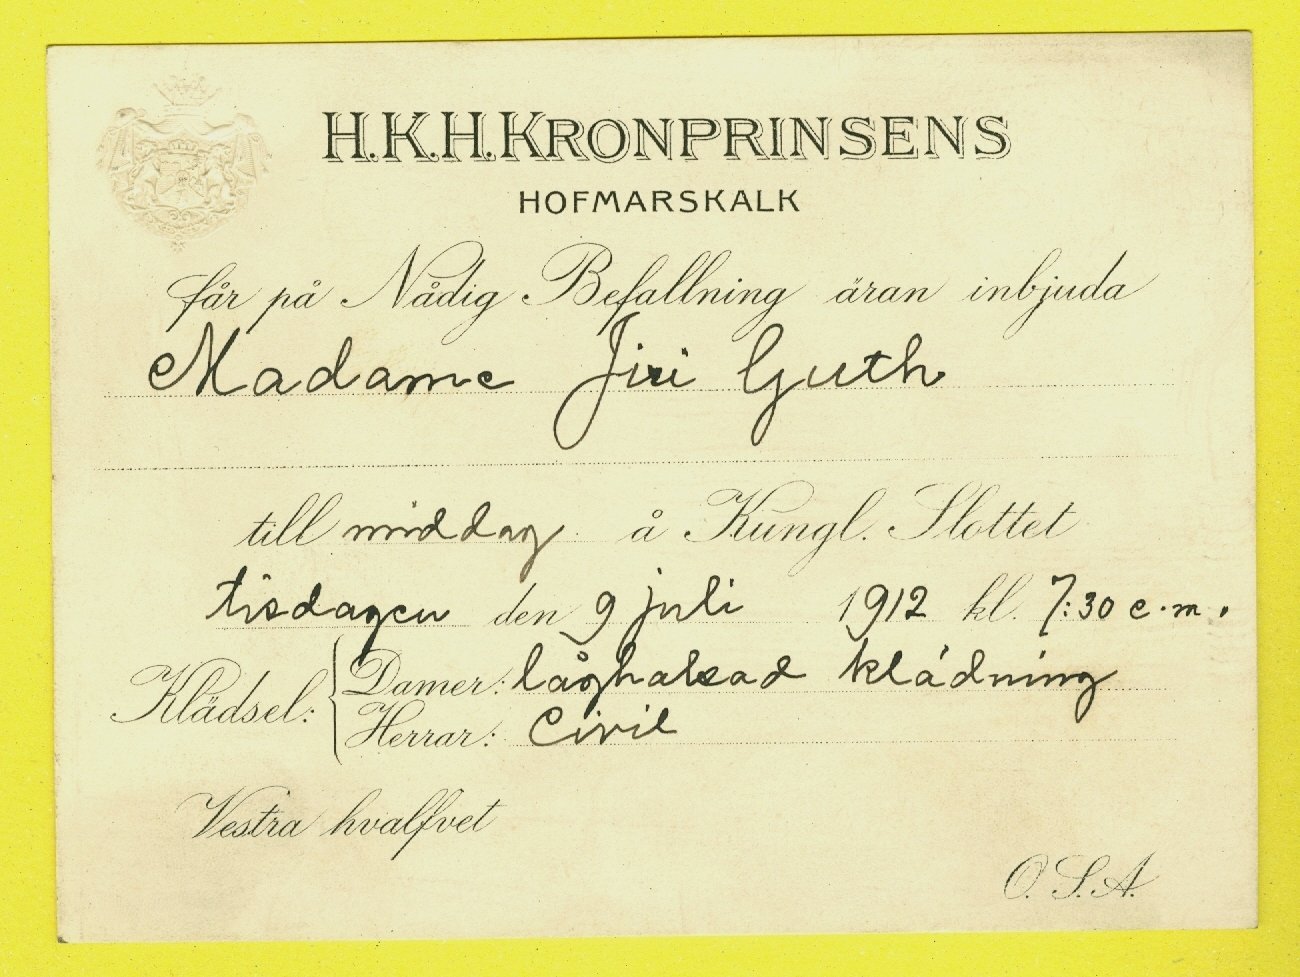 H.K.H. KRONPRINSENS
HOFMARSKALK
får på Nådig Befallning äran inbjuda
Madame Jiri Guth
till middag å Kungl. Slottet
tisdagen den 9 juli 1912 kl. 7:30 e.m.
Klädsel: Damer: låghalsad klädning
Herrar: Civil
Vestra hvalfvet
O. S. A.